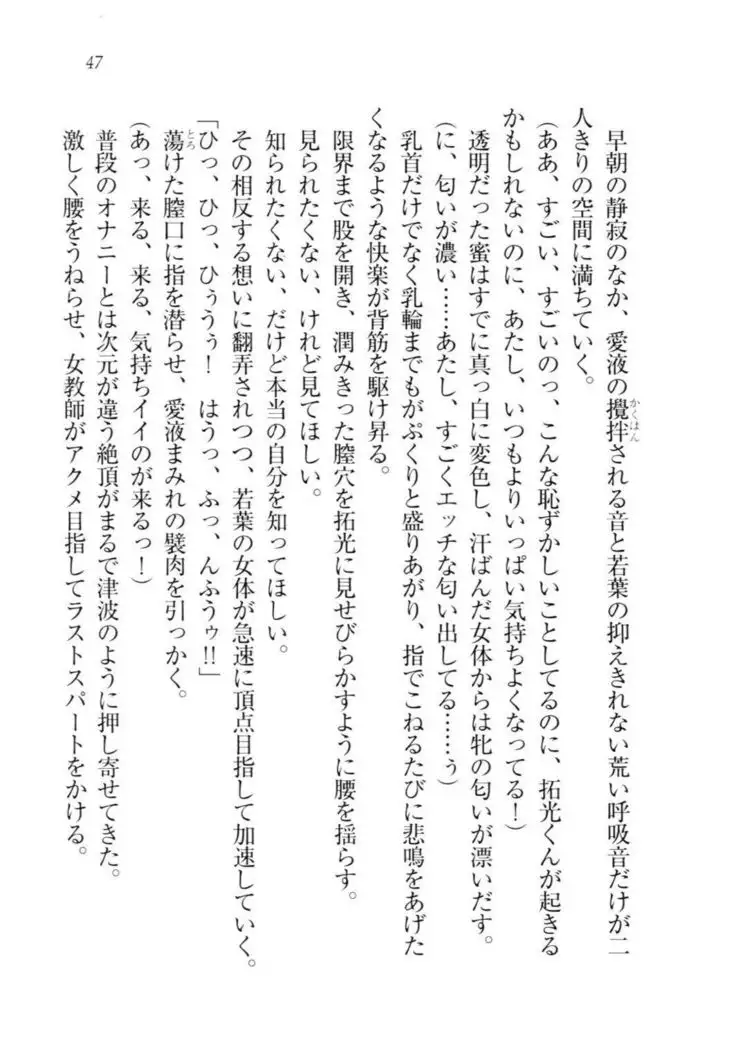 47
早朝の静寂のなか、愛液の攪拌される音と若葉の抑えきれない荒い呼吸音だけが二
人きりの空間に満ちていく。
(ああ、すごい、すごいのっ、こんな恥ずかしいことしてるのに、拓光くんが起きる
かもしれないのに、あたし、いつもよりいっぱい気持ちよくなってる!)
透明だった蜜はすでに真っ白に変色し、汗ばんだ女体からは牝の匂いが漂いだす。
(に、匂いが濃い……あたし、すごくエッチな匂い出してる……ぅ)
乳首だけでなく乳輪までもがぷくりと盛りあがり、指でこねるたびに悲鳴をあげた
くなるような快楽が背筋を駆け昇る。
限界まで股を開き、潤みきった膣穴を拓光に見せびらかすように腰を揺らす。
見られたくない、けれど見てほしい。
知られたくない、だけど本当の自分を知ってほしい。
その相反する想いに翻弄されつつ、若葉の女体が急速に頂点目指して加速していく。
「ひっ、ひっ、ひぅうぅ! はうっ、ふっ、んふうゥ!!」
蕩けた膣口に指を潜らせ、愛液まみれの襞肉を引っかく。
(あっ、来る、来る、気持ちイイのが来るっ!)
普段のオナニーとは次元が違う絶頂がまるで津波のように押し寄せてきた。
激しく腰をうねらせ、女教師がアクメ目指してラストスパートをかける。